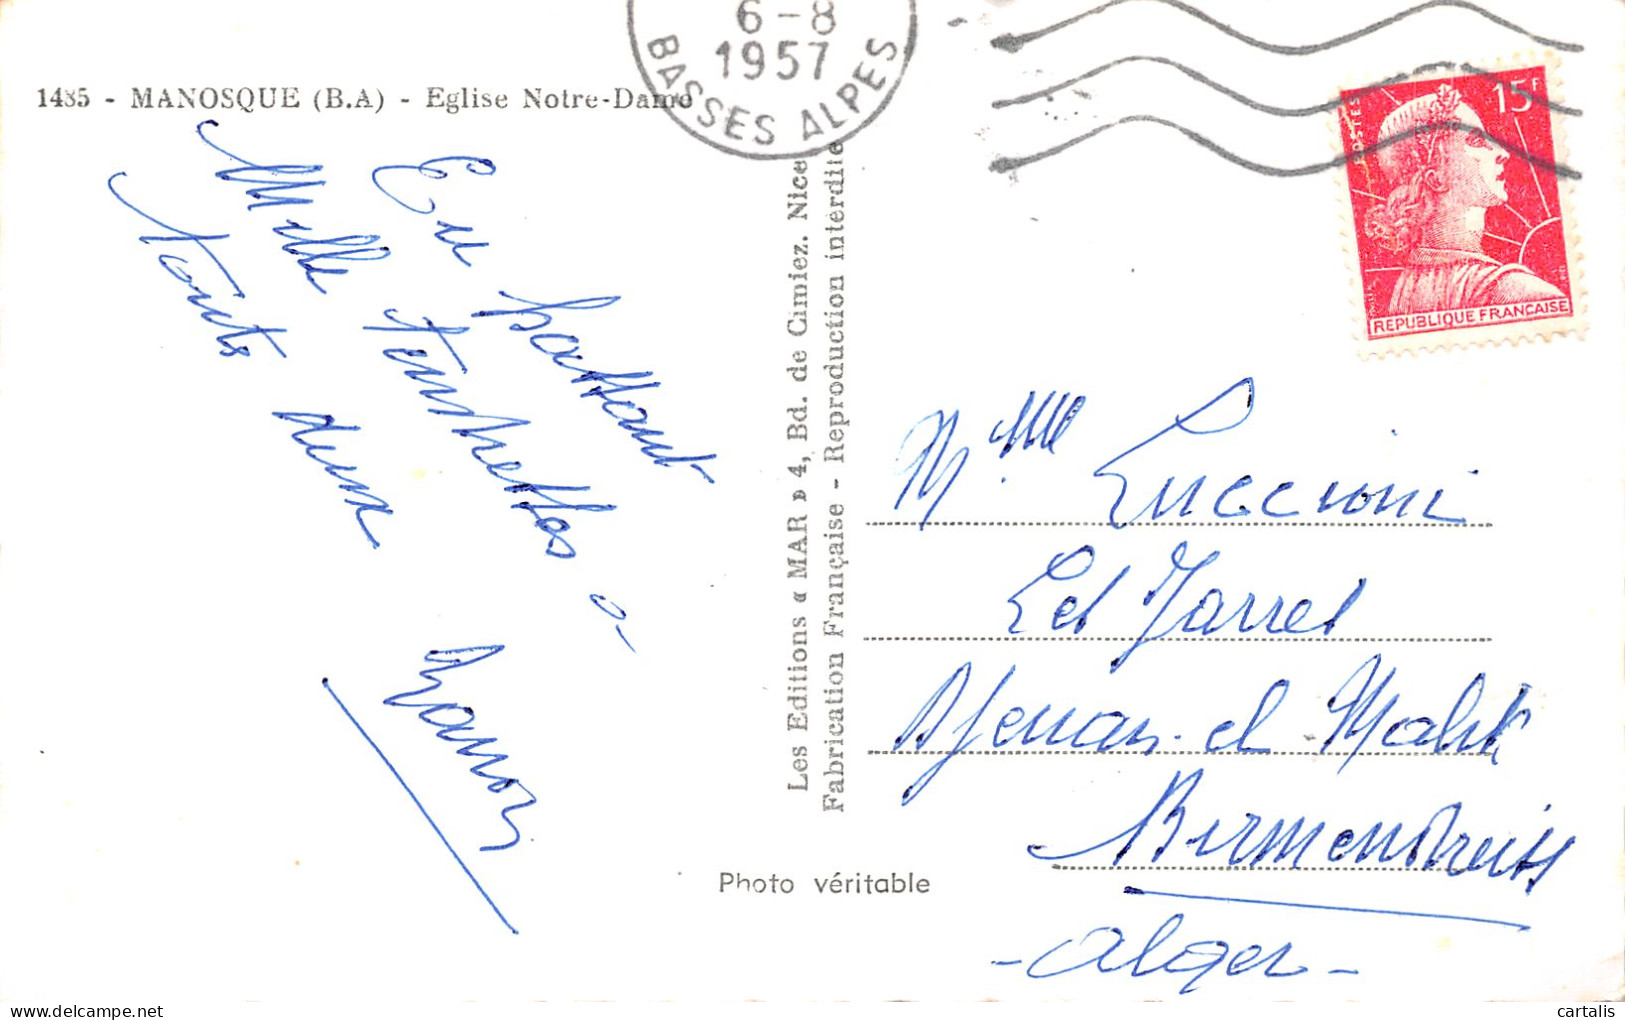 6-8
1957
BASSES ALPES
1485 - MANOSQUE (B.A) - Eglise Notre-Dame
En partant
Mille tendresses à
toutes deux
Les Editions « MAR » 4, Bd. de Cimiez. Nice
Fabrication Française - Reproduction interdite
Photo véritable
POSTES
15F
REPUBLIQUE FRANÇAISE
Mme Luccioni
Les Jarres
Djenan-el Malik
Birmandreïs
- Alger -
cartalis